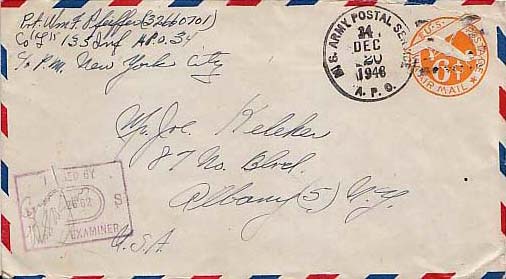 Pvt. Wm F. Pfeiffer (32660701)
Co "L" 135 Inf A.P.O. 34
c/o P.M. New York City
U.S. ARMY POSTAL SERVICE
DEC
20
A.P.O.
U.S. POSTAGE
6¢
AIR MAIL
Mr. Joe Keleher
87 No. Blvd.
Albany (5) N.Y.
U.S.A.
BY
S
EXAMINER